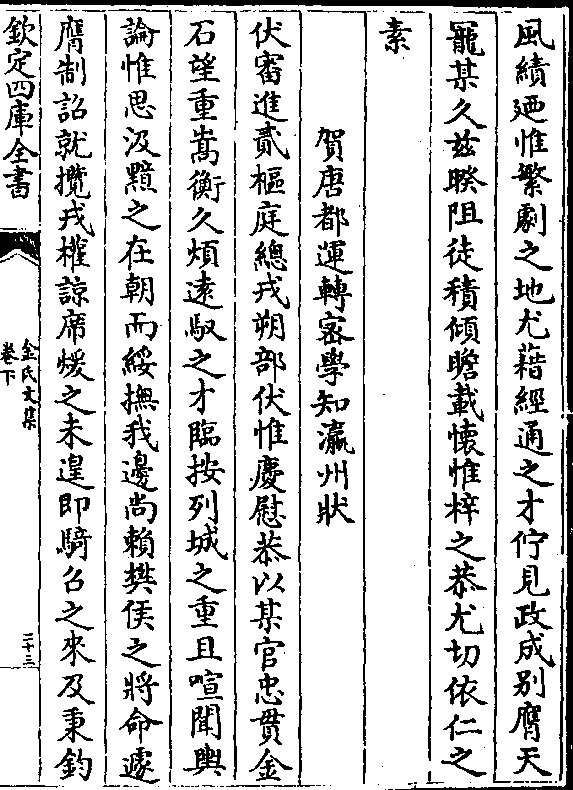 風績廼惟繁劇之地尤藉經通之才佇見政成别膺天
寵某久兹暌阻徒積傾瞻載懷惟梓之恭尤切依仁之
素
賀唐都運轉宻學知瀛州狀
伏審進貳樞庭總戎朔部伏惟慶慰恭以某官忠貫金
石望重嵩衡久煩逺馭之才臨按列城之重且喧聞輿
論惟思汲黯之在朝而綏撫我邊尚賴樊侯之將命遽
膺制詔就攬戎權諒席煖之未遑即騎召之來及秉鈞
欽定四庫全書
金氏文集
卷下
三十三